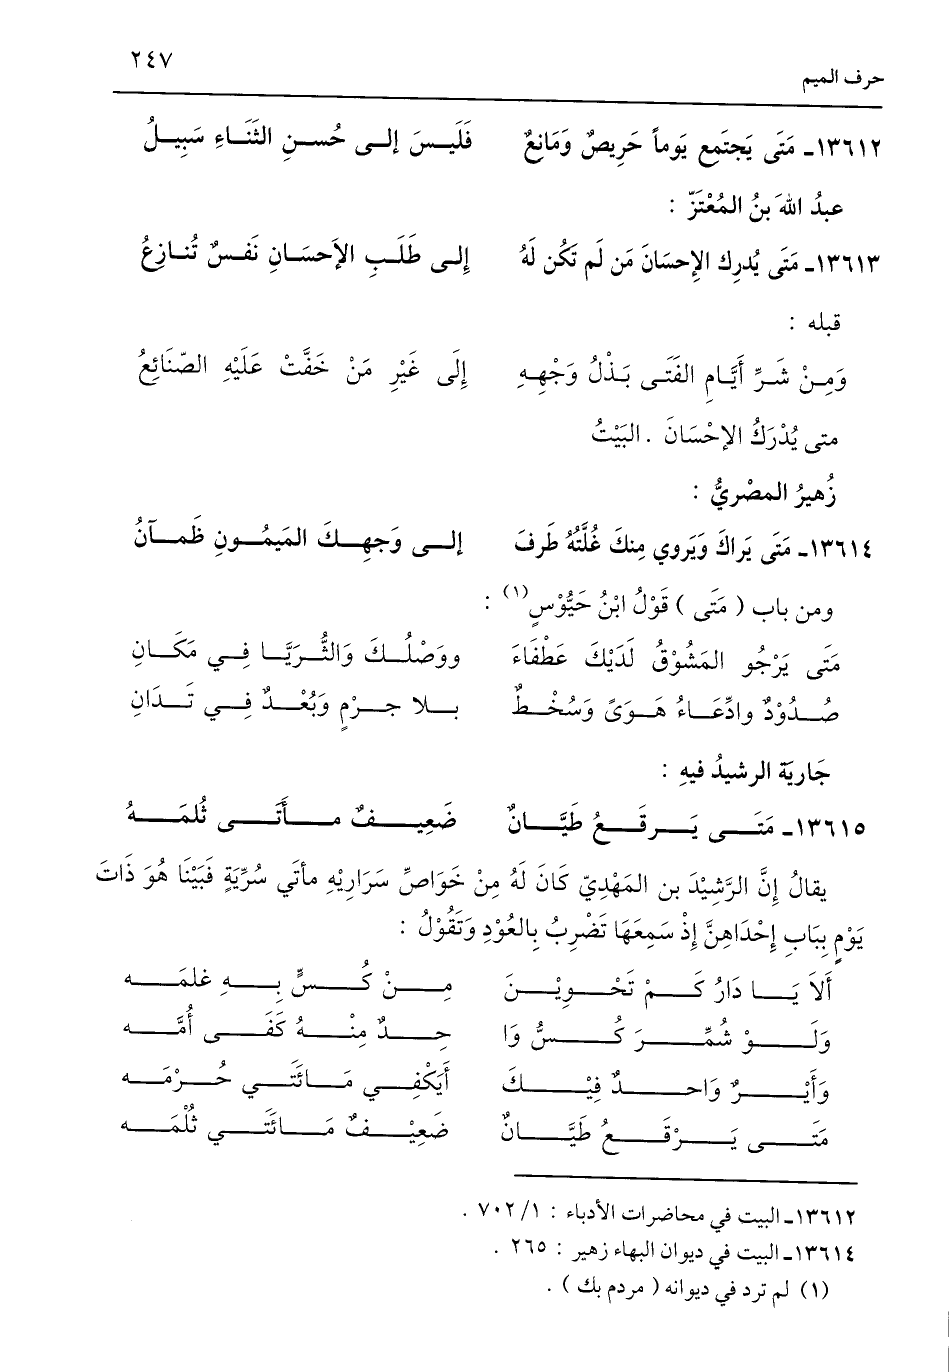 حرف الميم ٢٤٧
١٣٦١٢ـ مَتَى يَجتَمِع يَوماً حَرِيصٌ وَمَانِعٌ فَلَيسَ إلى حُسنِ الثَنَاءِ سَبِيلُ
عبدُ اللهَ بنُ المُعْتَزّ :
١٣٦١٣ـ مَتَى يُدرِك الإِحسَانَ مَن لَم تَكُن لَهُ إِلى طَلَبِ الإحسَانِ نَفسٌ تُنازِعُ
قبله :
وَمِنْ شَرِّ أَيَّامِ الفَتَى بَذْلُ وَجْهِهِ إِلَى غَيْرِ مَنْ خَفَّتْ عَلَيْهِ الصّنَائِعُ
متى يُدْرَكُ الإحْسَانَ . البَيْتُ
زُهيرُ المصْريُّ :
١٣٦١٤ـ مَتَى يَراكَ وَيَروي مِنكَ غُلَّتُهُ طَرفَ إلى وَجهِكَ المَيمُونِ ظَمآنُ
ومن باب ( مَتَى ) قَوْلُ ابْنُ حَيُّوْسٍ(١) :
مَتَى يَرْجُو المَشُوْقُ لَدَيْكَ عَطْفَاءَ ووَصْلُكَ وَالثُّرَيَّا فِي مَكَانِ
صُدُوْدٌ وادِّعَاءُ هَوَىً وَسُخْطٌ بلا جرْمٍ وَبُعْدٌ فِي تَدَانِ
جَارية الرشيدُ فيهِ :
١٣٦١٥ـ مَتَى يَرقَعُ طَيَّانٌ ضَعِيفٌ مأَتَى ثُلمَهُ
يقالُ إِنَّ الرَّشِيْدَ بن المَهْدِيّ كَانَ لَهُ مِنْ خَوَاصِّ سَرَارِيْهِ مأتَي سُرِّيَةٍ فَبَيْنَا هُوَ ذَاتَ
يَوْمٍ بِبَابِ إحْدَاهِنَّ إذْ سَمِعَهَا تَضْرِبُ بِالعُوْدِ وَتَقُوْلُ :
أَلاَ يَا دَارُ كَمْ تَحْوِيْنَ مِنْ كُسٍّ بِهِ غلمَه
وَلَوْ شُمِّرَ كُسُّ وَا حِدٌ مِنْهُ كَفَى أُمَّه
وَأَيْرٌ وَاحدٌ فِيْكَ أَيَكْفِي مَائَتَي حُرْمَه
مَتَى يَرْقَعُ طَيَّانٌ ضَعِيْفٌ مَائَتَي ثُلْمَه
١٣٦١٢ـ البيت في محاضرات الأدباء : ١/ ٧٠٢ .
١٣٦١٤ـ البيت في ديوان البهاء زهير : ٢٦٥ .
(١) لم ترد في ديوانه ( مردم بك ) .